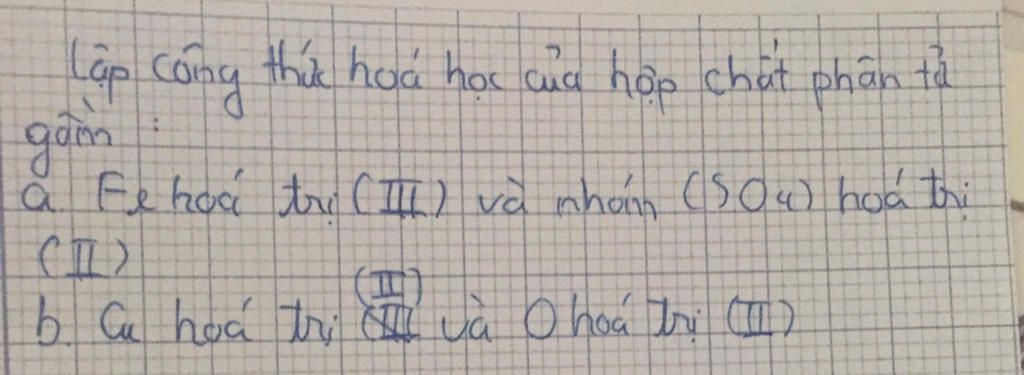 Lập công thức hoá học của hợp chất phân tử
gồm :
a. Fe hoá trị (III) và nhóm (SO4) hoá trị
(II)
(II)
b. Cu hoá trị và O hoá trị (II)